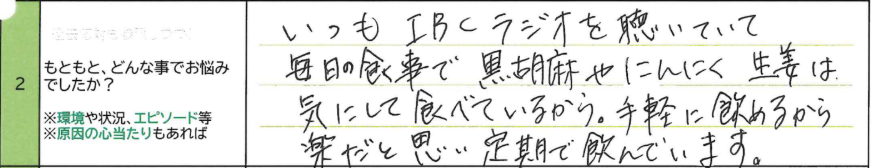 2
もともと、どんな事でお悩み
でしたか？
※環境や状況、エピソード等
※原因の心当たりもあれば
いつも IBCラジオを聴いていて
毎日の食事で 黒胡麻やにんにく 生姜は
気にして食べているから。手軽に飲めるから
楽だと思い 定期で飲んでいます。